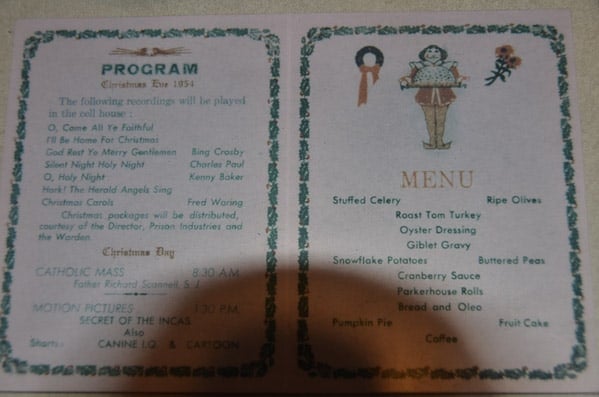 PROGRAM
Christmas Eve 1954
The following recordings will be played
in the cell house :
O, Come All Ye Faithful
I'll Be Home For Christmas
God Rest Ye Merry Gentlemen Bing Crosby
Silent Night Holy Night Charles Paul
O, Holy Night Kenny Baker
Hark! The Herald Angels Sing
Christmas Carols Fred Waring
Christmas packages will be distributed,
courtesy of the Director, Prison Industries and
the Warden.
Christmas Day
CATHOLIC MASS 8:30 A.M.
Father Richard Scannell, S. J.
MOTION PICTURES 1:30 P.M.
SECRET OF THE INCAS
Also
Shorts: CANINE I.Q. & CARTOON
MENU
Stuffed Celery Ripe Olives
Roast Tom Turkey
Oyster Dressing
Giblet Gravy
Snowflake Potatoes Buttered Peas
Cranberry Sauce
Parkerhouse Rolls
Bread and Oleo
Pumpkin Pie Fruit Cake
Coffee